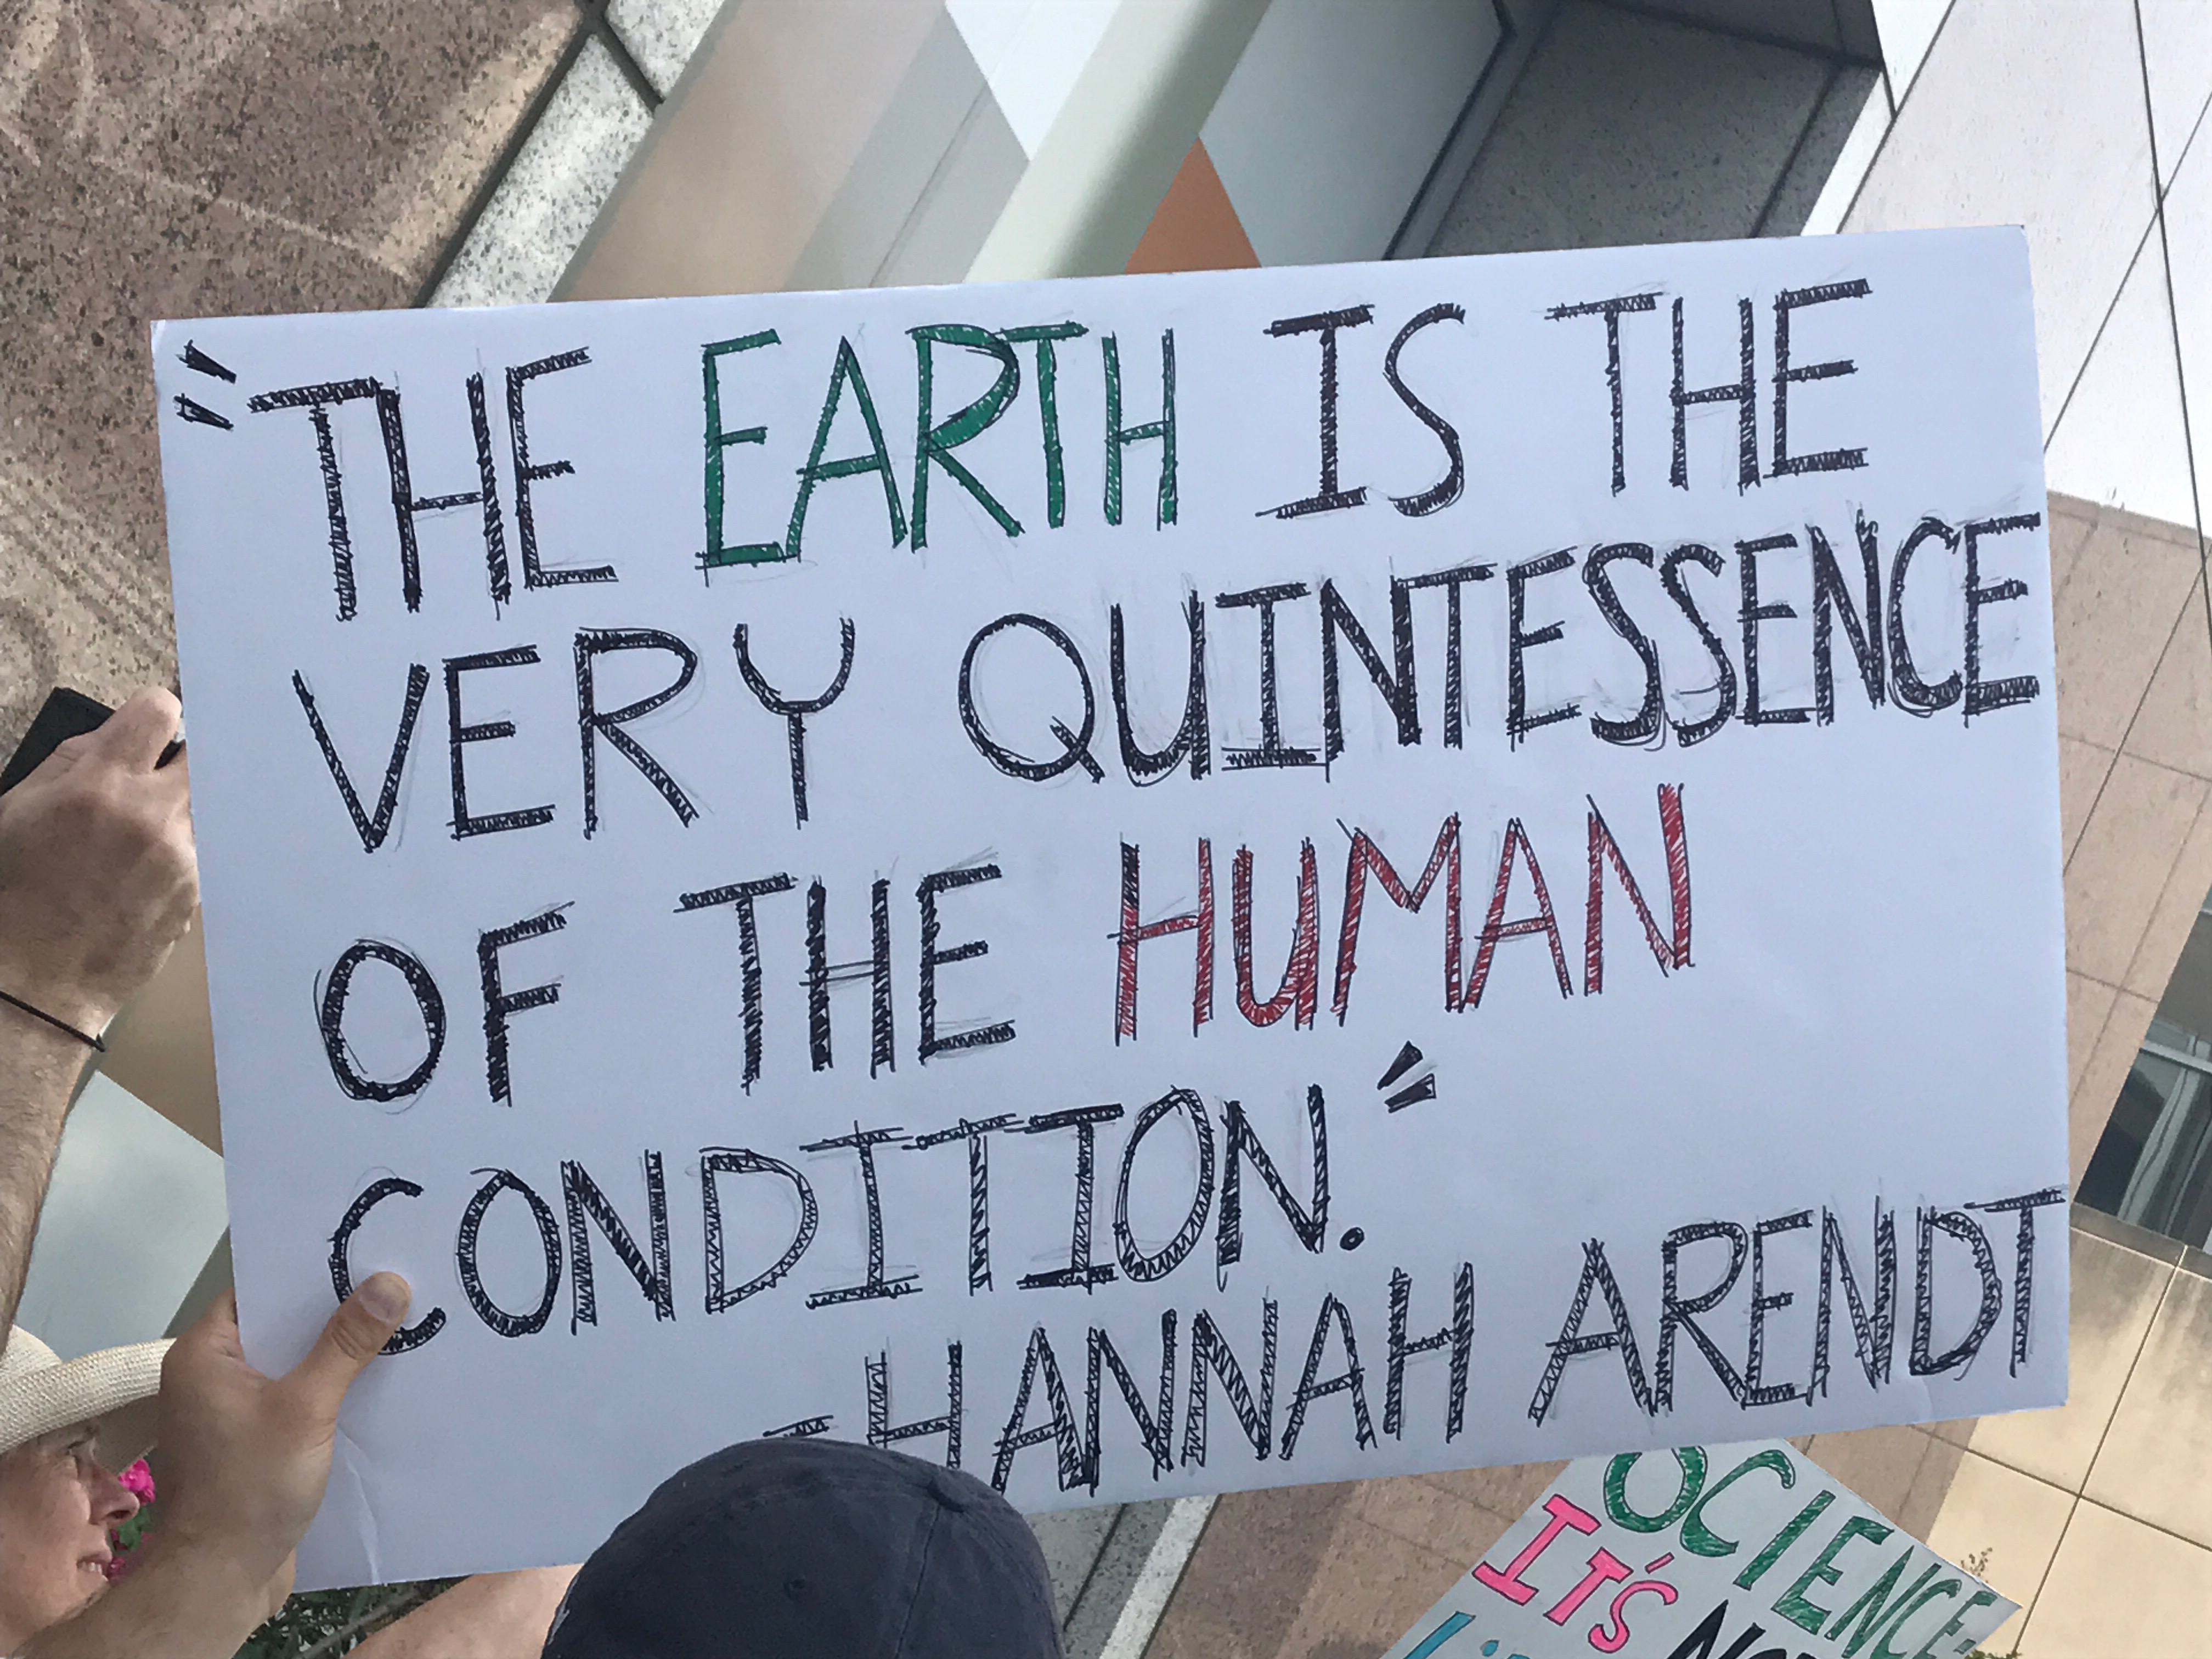 "THE EARTH IS THE
VERY QUINTESSENCE
OF THE HUMAN
CONDITION."
-HANNAH ARENDT
SCIENCE-
IT'S